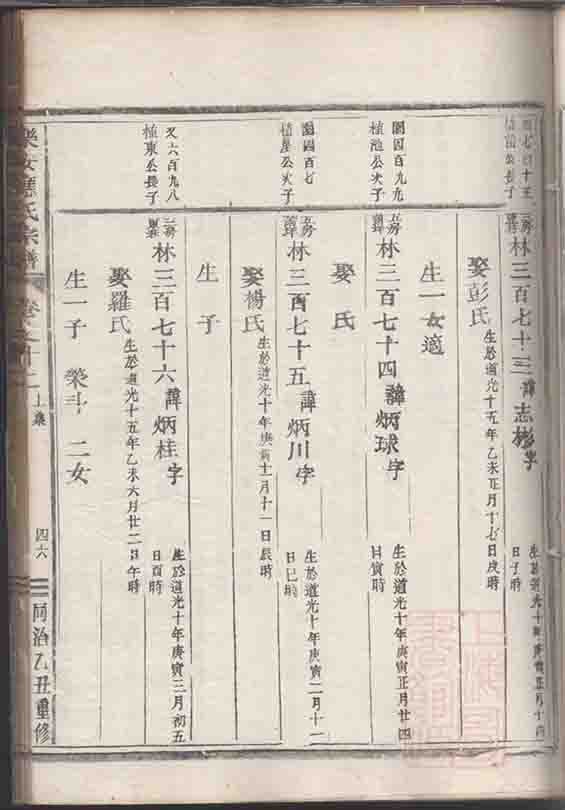 植池公長子
三房
林三百七十三諱志彬字
生於道光十年庚寅正月十四
日子時
娶彭氏
生於道光十五年乙未正月十七日戌時
生一女適
植池公次子
林三百七十四諱炳球字
生於道光十年庚寅正月廿四
日寅時
娶氏
闕四百七
植星公次子
林三百七十五諱炳川字
生於道光十年庚寅二月十二
日巳時
娶楊氏
生於道光十年庚寅十一月十一日辰時
生子
又六百九八
植東公長子
林三百七十六諱炳桂字
生於道光十年庚寅三月初五
日酉時
娶羅氏
生於道光十五年乙未六月廿二日午時
生一子 榮斗 二女
樂安應氏宗譜
上集
四六
同治乙丑重修